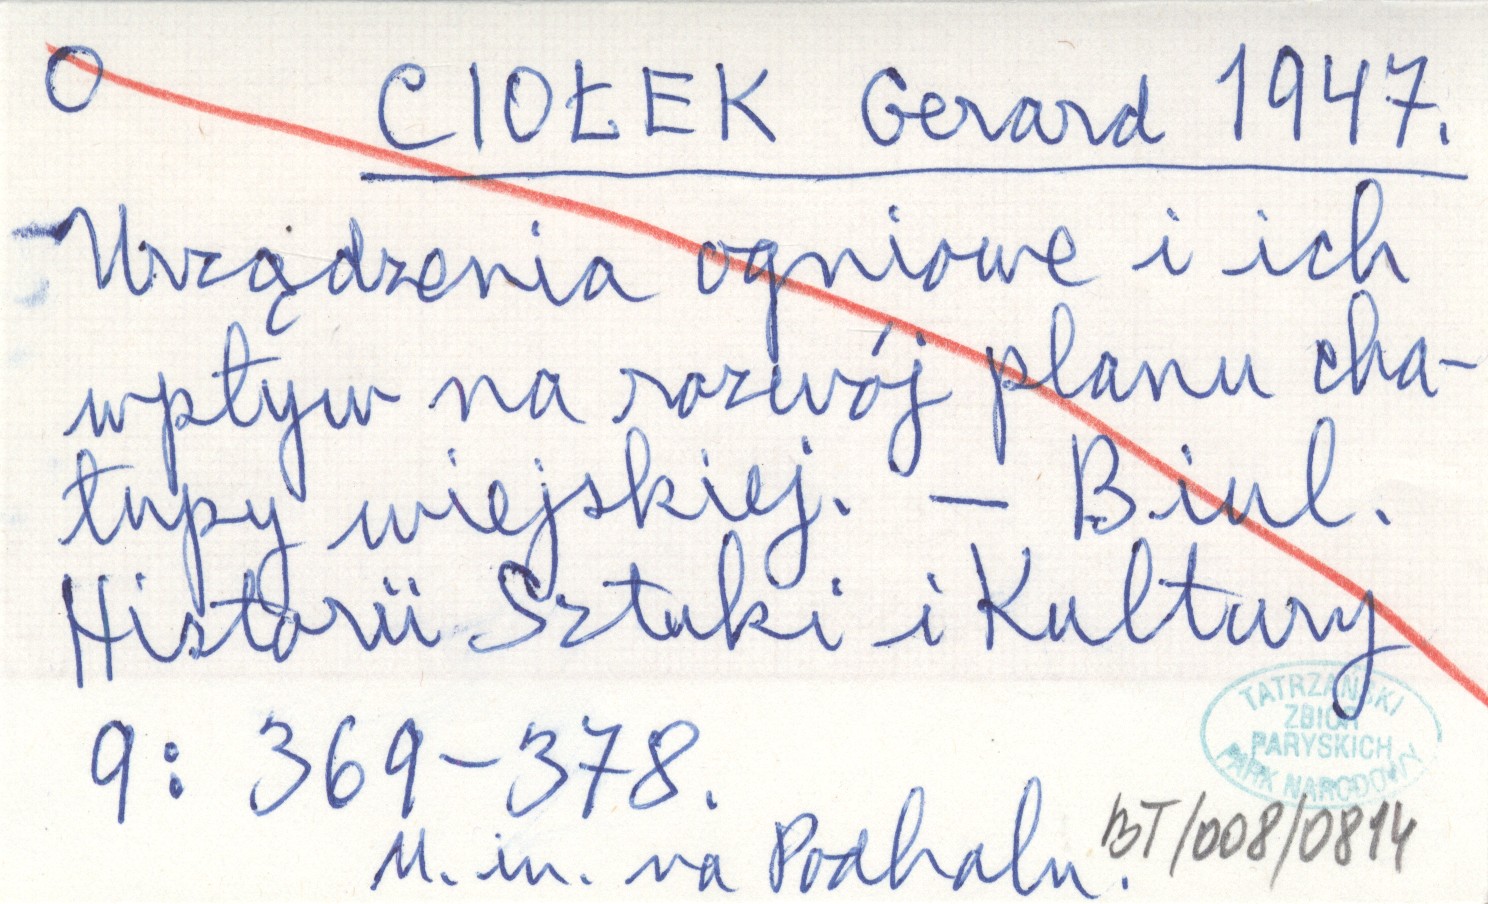 O CIOŁEK Gerard 1947.
Urządzenia ogniowe i ich
wpływ na rozwój planu cha-
łupy wiejskiej. — Biul.
Historii Sztuki i Kultury
9: 369-378.
M. in. na Podhalu.
TATRZAŃSKI
ZBIÓR
PARYSKICH
PARK NARODOWY
BT/008/0814